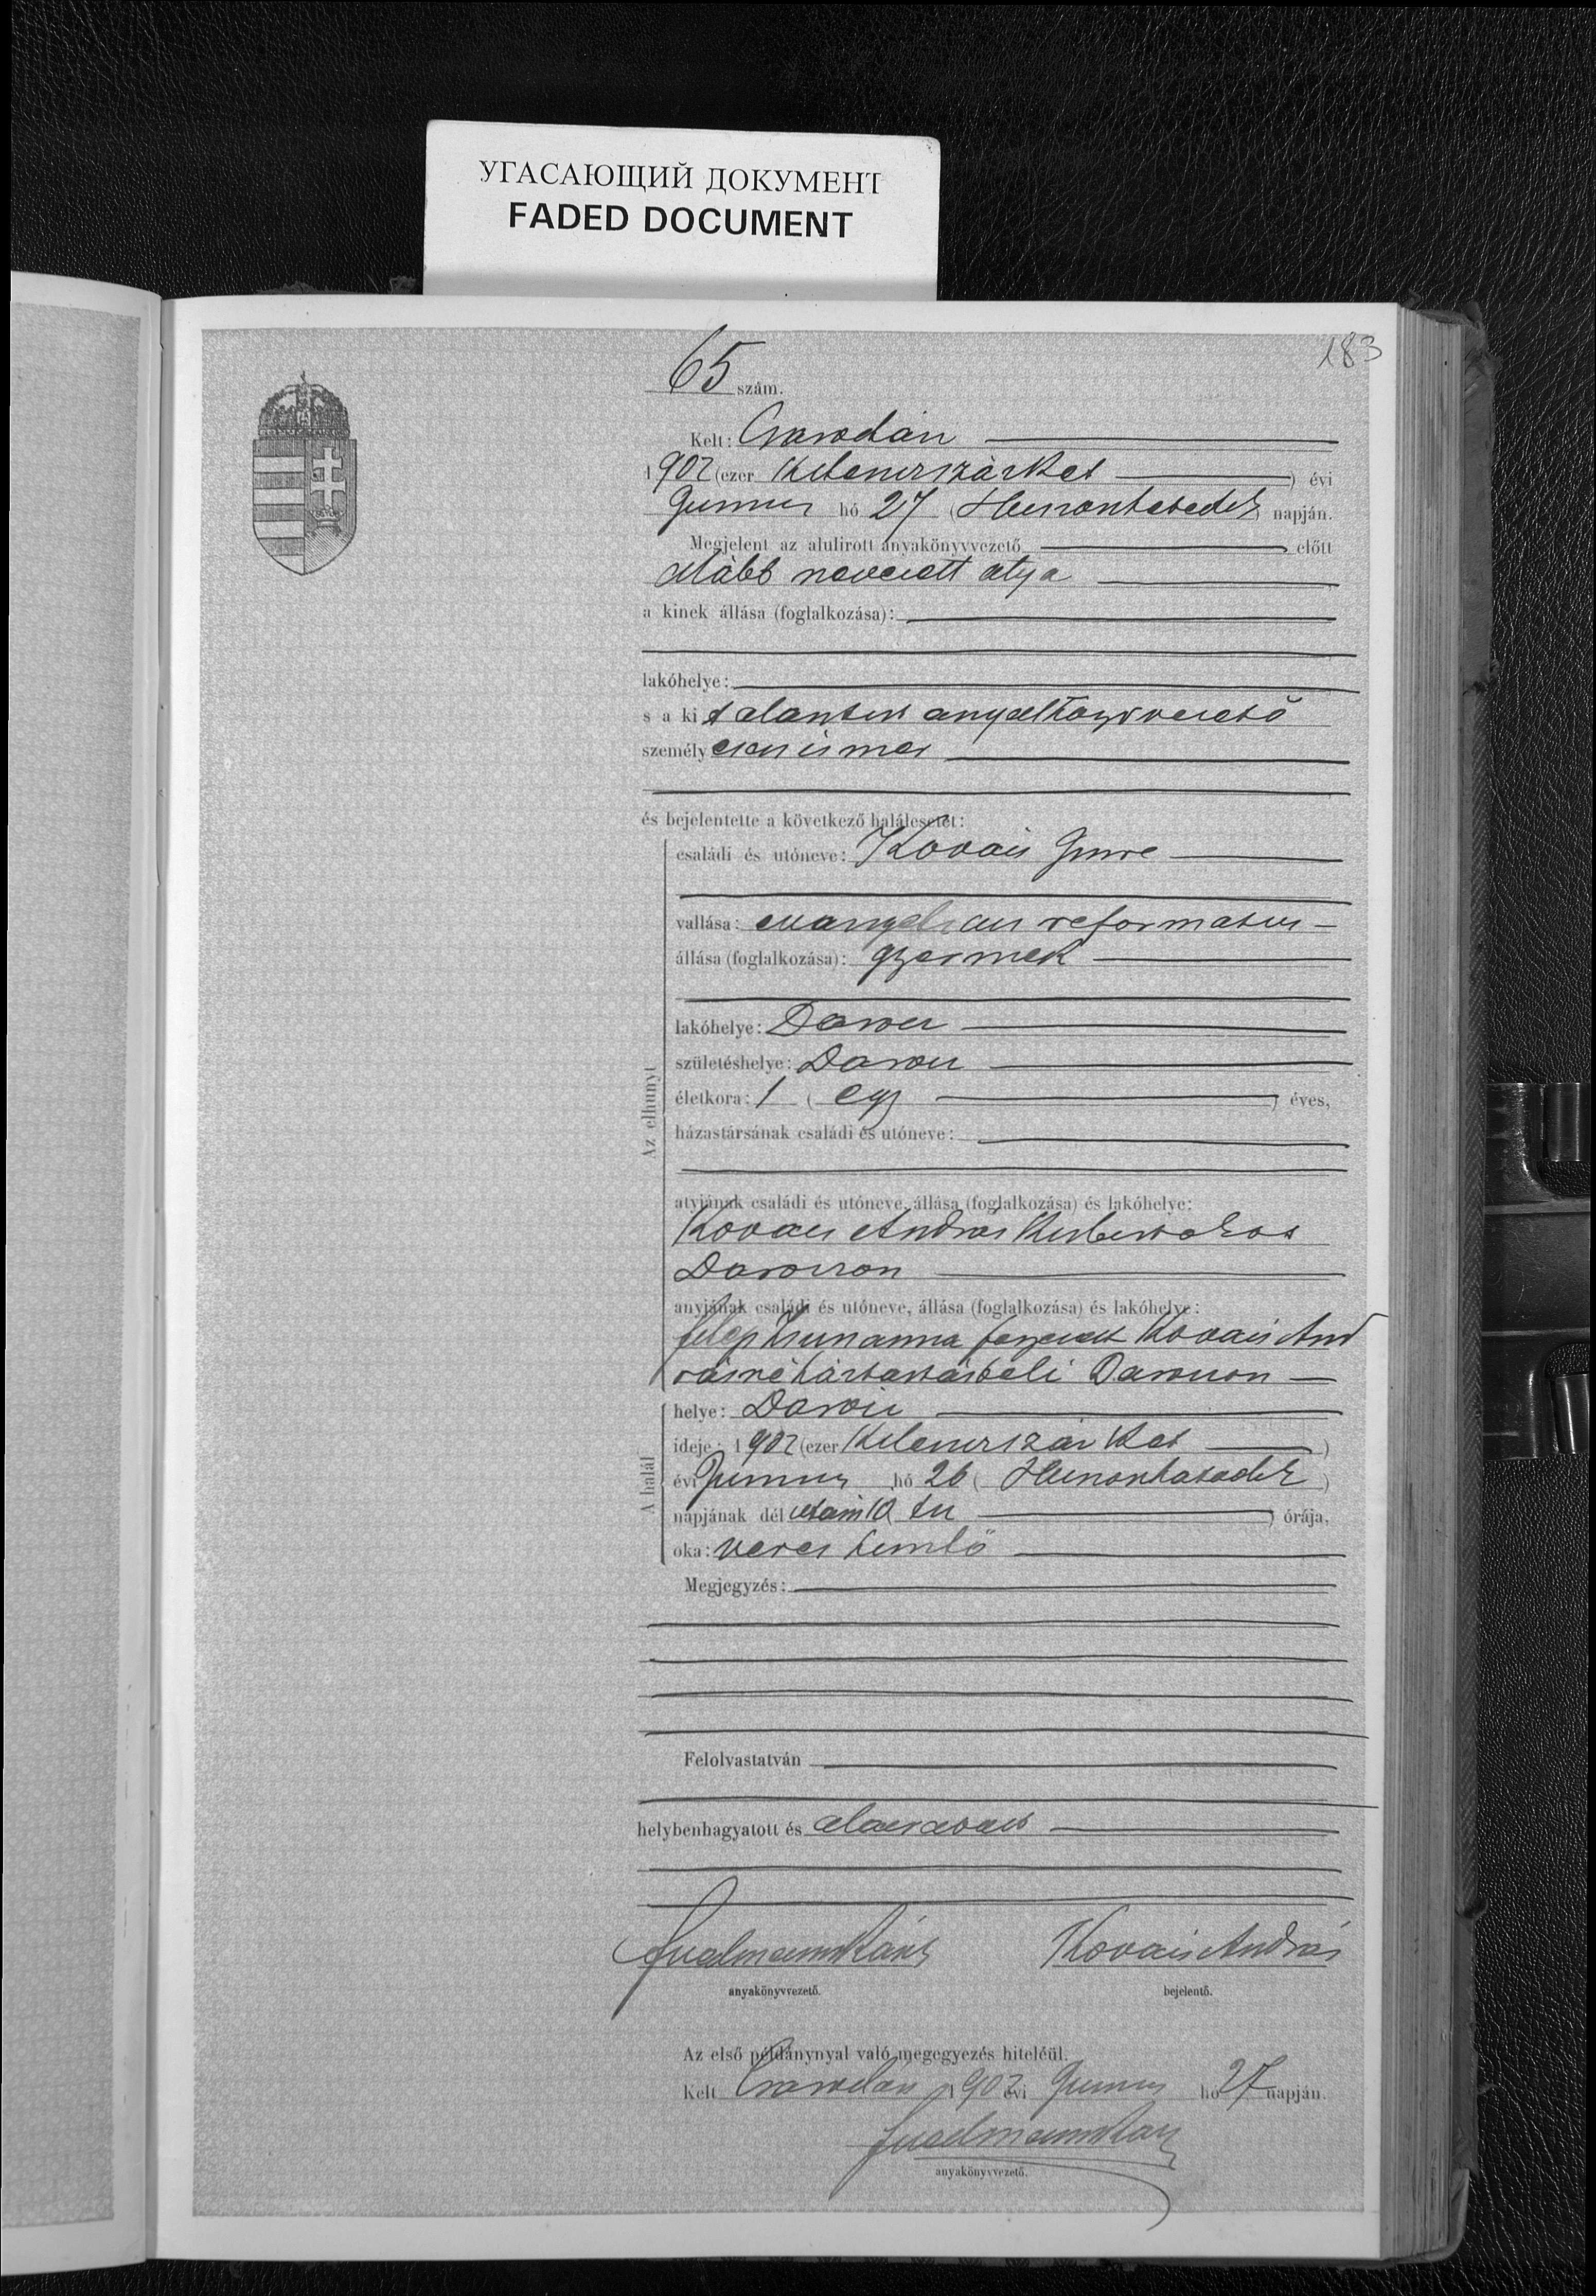 УГАСАЮЩИЙ ДОКУМЕНТ
FADED DOCUMENT
183
65 szám.
Kelt: Csarodán
1902 (ezer kilenczszázket) évi
Junius hó 27 (Huszonhetedik) napján.
Megjelent az alulirott anyakönyvvezető előtt
alább nevezett atya
a kinek állása (foglalkozása):
lakóhelye:
s a kit alantirt anyakönyvvezető
személyesen ismer
és bejelentette a következő halálesetet:
Az elhunyt
családi és utóneve: Kovács Imre
vallása: evangelicus reformatus
állása (foglalkozása): gyermek
lakóhelye: Darócz
születéshelye: Darócz
életkora: 1 (egy) éves,
házastársának családi és utóneve:
atyjának családi és utóneve, állása (foglalkozása) és lakóhelye:
Kovács András kisbirtokos
Daróczon
anyjának családi és utóneve, állása (foglalkozása) és lakóhelye:
Filep Zsuzsanna férjezett Kovács And
rásné háztartásbeli Daróczon
A halál
helye: Darócz
ideje: 1902 (ezer kilenczszázket)
évi Junius hó 26 (Huszonhatodik)
napjának dél után 10 (tiz) órája,
oka: veres himlő
Megjegyzés:
Felolvastatván
helybenhagyatott és aláiratott
Kovács András
anyakönyvvezető.
bejelentő.
Az első példánynyal való megegyezés hiteléül.
Kelt Csarodán 1902 évi Junius hó 27 napján.
anyakönyvvezető.